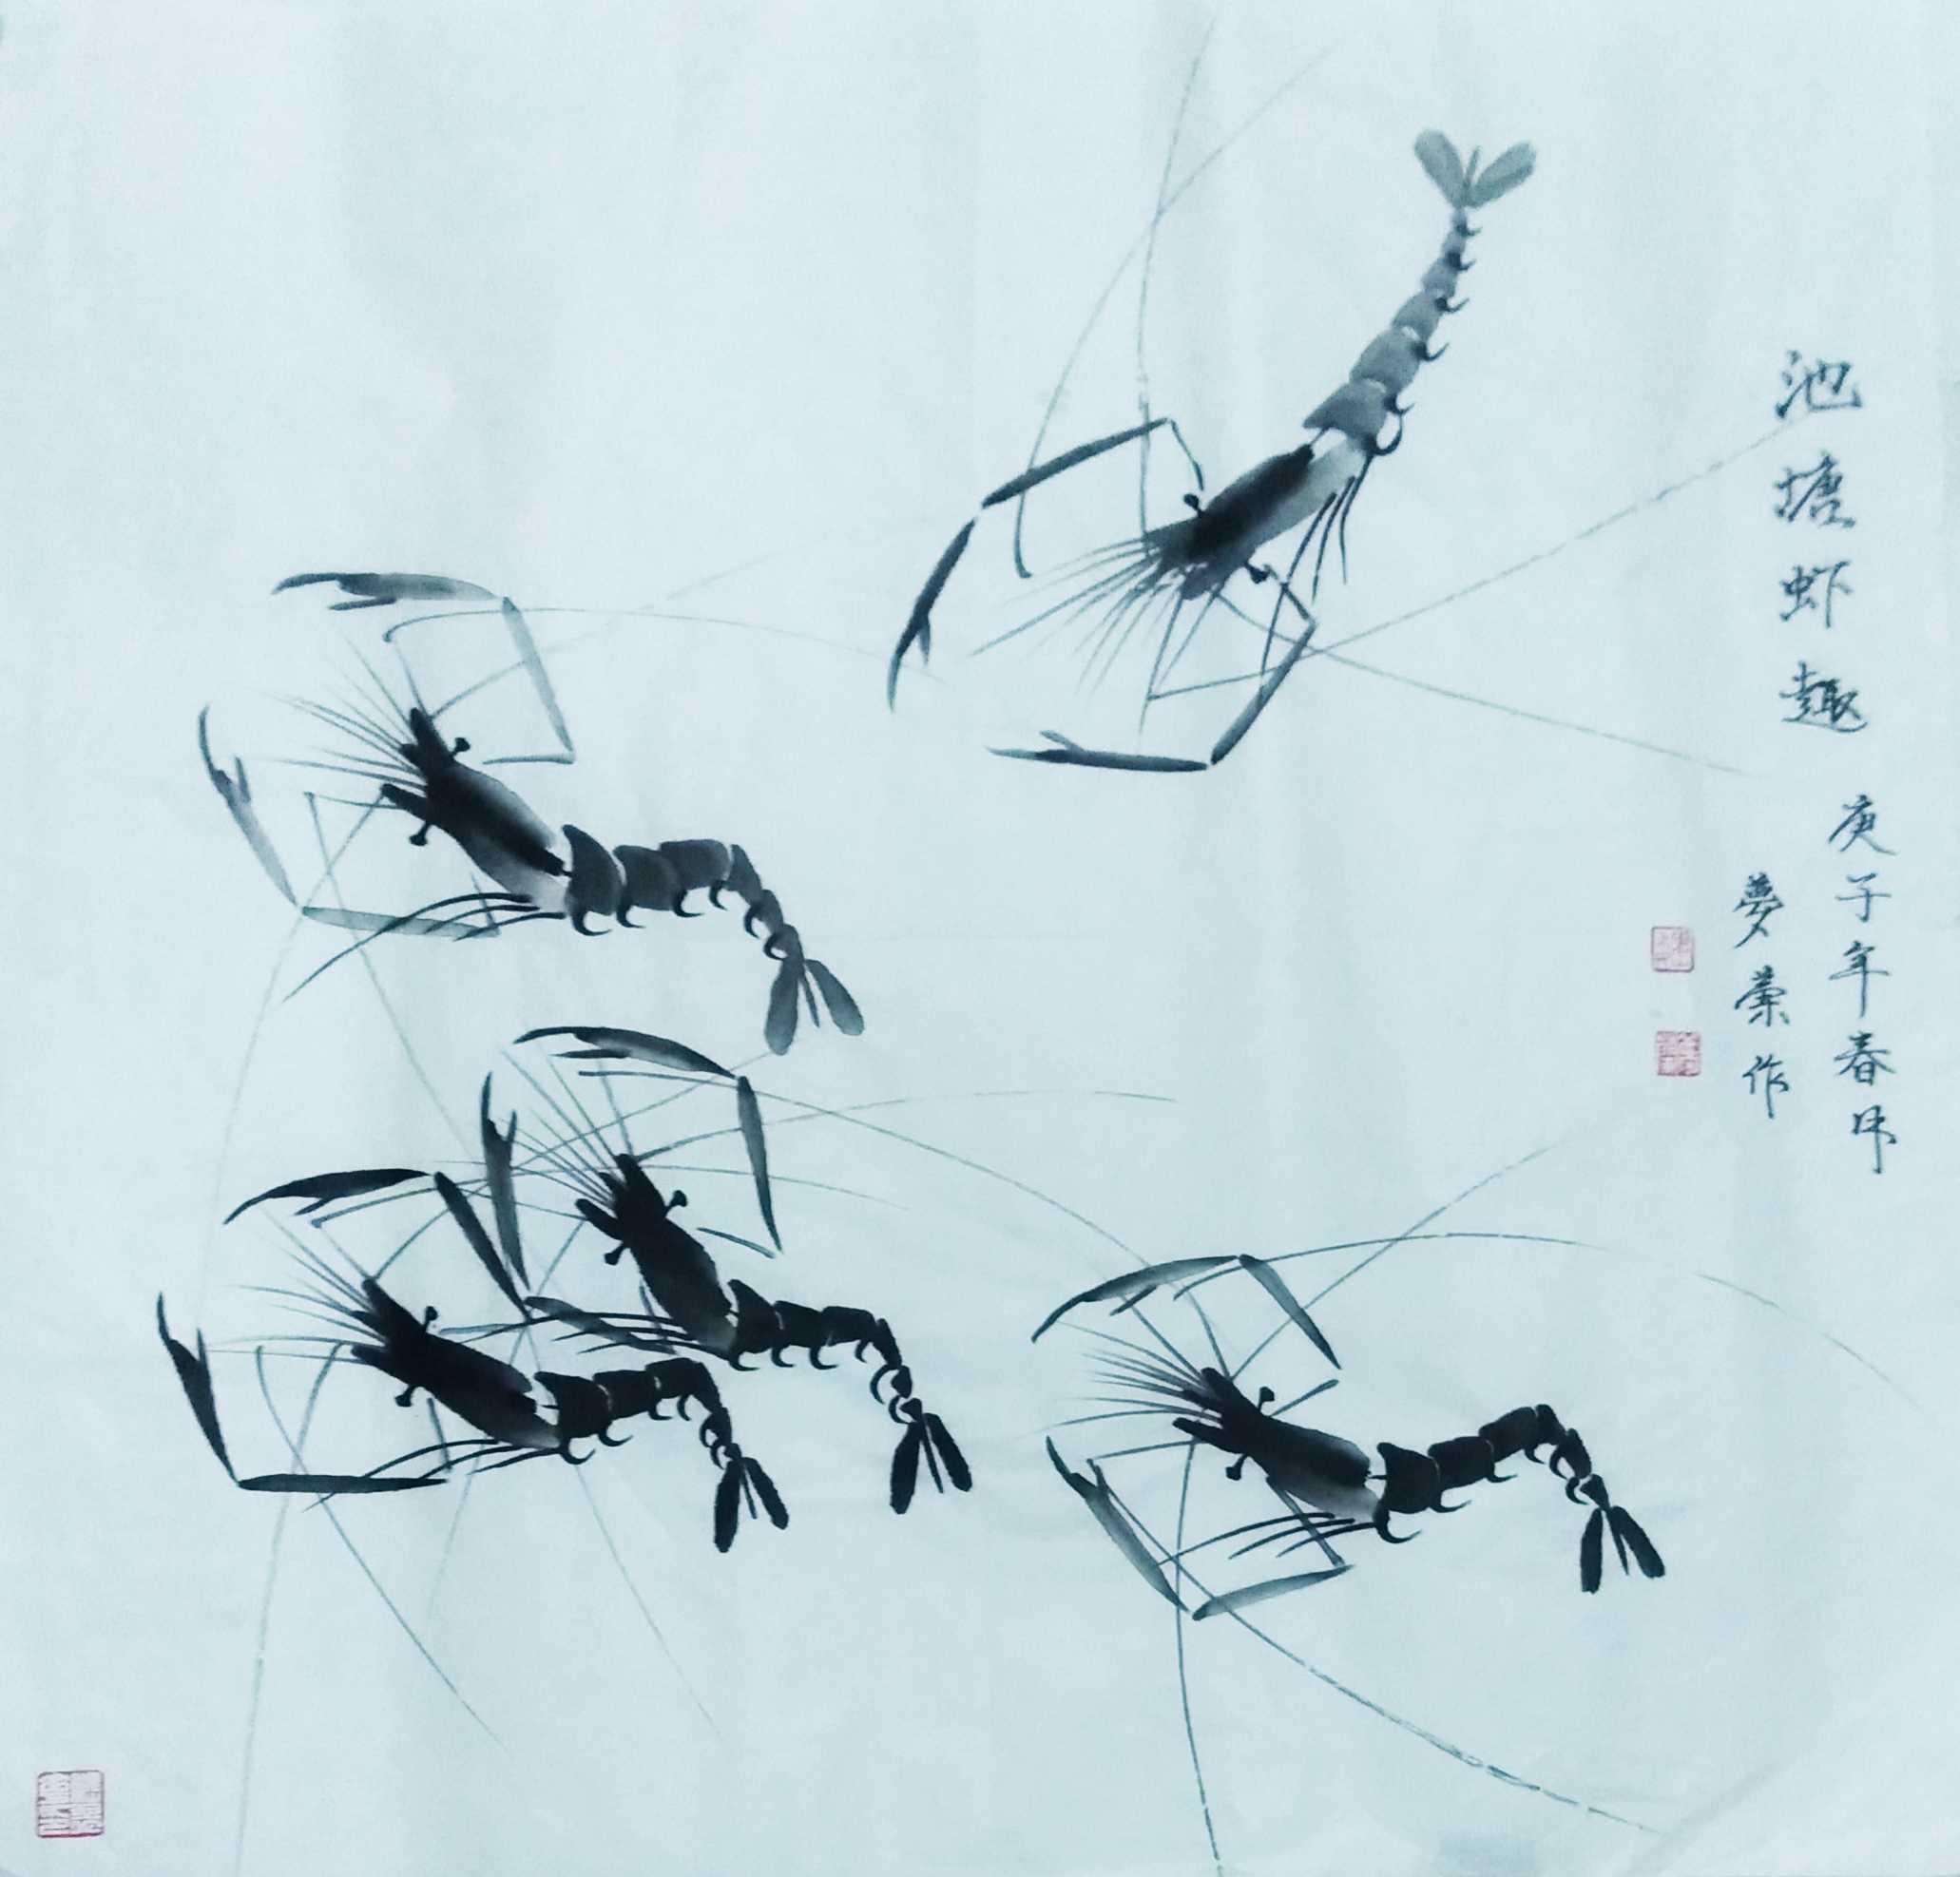 池塘虾趣
庚子年春月
夢荣作